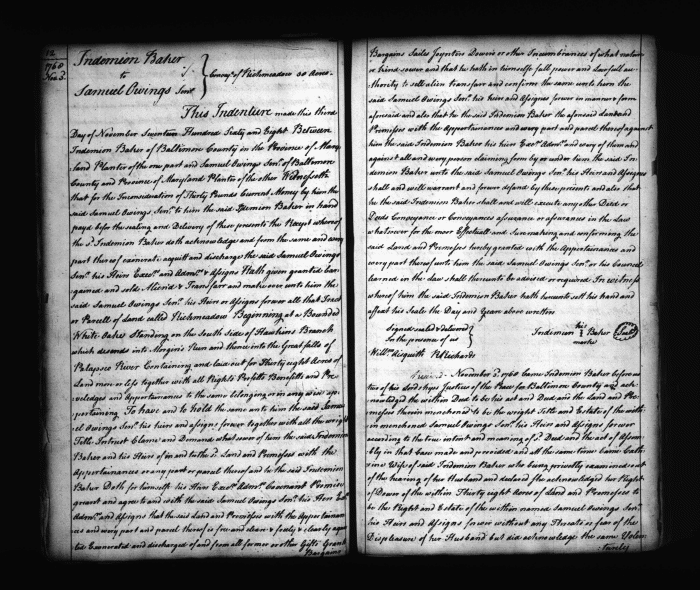 12
1760
Nov. 3.
Indemion Baker
to
Samuel Owings Senr.
Convey.. of Richmeadow 30 Acres
This Indenture made this third
Day of November Seventeen Hundred Sixty and Eight Between
Indemion Baker of Baltimore County in the Province of Mary
land Planter of the one part and Samuel Owings Senr. of Baltimore
County and Province of Maryland Planter of the other Witnesseth
that for the Inconsideration of Thirty Pounds Current Money by him the
said Samuel Owings Senr. to him the said Indemion Baker in hand
payd before the sealing and Delivery of these presents the Receipt whereof
the sd. Indemion Baker doth acknowledge and from the same and every
part thereof acquitt and discharge the said Samuel Owings
Senr. his Heirs Execrs. and Admrs. & Assigns Hath given granted bar
gained and sold Aliend & Transfarr and make over unto him the
said Samuel Owings Senr. his Heirs or Assigns forever all that Tract
or Parcell of Land called Richmeadow Beginning at a Bounded
White Oake Standing on the South Side of Hawkins Branch
which desends into Morgins Run and thence into the Great falls of
Patapsco River Containing and laid out for Thirty eight Acres of
Land more or less together with all Rights Profitts Benefitts and Pre
veledges and Appertainances to the same belonging or in any wise ap
pertaining To have and to hold the same unto him the said Samu
el Owings Senr. his heirs and assigns forever together with all the weright
Title Intrust Claime and Demands whatsoever of him the said Indemion
Baker and his Heirs of in and to the sd. Land and Premises with the
Appertainances or any part or parcel thereof and to the said Indemion
Baker Doth for himself his Heirs Execrs. Admrs. Covenant Promise
grant and agree to and with the said Samuel Owings Senr. his Heirs Execrs
Admrs. and Assigns that the said Land and Premises with the Appertainan
ces and every part and parcel thereof is free and cleare & freely & clearly aquit
ted Exonerated and discharged of and from all former or other Gifts Grants
Bargains
Bargains Sailes Joynters Dowers or other Incumbrances of what nature
or kind soever and that he hath in himselfe full power and Lawfull au
thority to sell alien transfarr and confirme the same unto him the
said Samuel Owings Senr. his Heirs and Assignes forever in manner & form
aforesaid and also that he the said Indemion Baker the aforesaid Land and
Premises with the Appertainances and every part and parcel thereof against
him the said Indemion Baker his heirs Execrs. Admrs. and every of them and
against all and every person claiming from by or under him the said In
demion Baker unto the said Samuel Owings Senr. his Heirs and Assigns
shall and will warrant and forever defend by these presents and also that
he the said Indemion Baker shall and will execute any other Deed or
Deeds Conveyance or Conveyances assurance or assurances in the Law
whatsoever for the more Effectuall and Sure making and conforming the
said Land and Premises hereby granted with the Appertainances and
every part thereof unto him the said Samuel Owings Senr. or his Councel
learned in the Law shall thereunto be advised or required In witness
whereof him the said Indemion Baker hath hereunto sett his hand and
affixt his Seale the Day and Year above written
Signed sealed & delivered
In the presence of us
Indemion his mark Baker Seal
Willm. Aisquith R Richards
November 3d. 1760 Came Indemion Baker before me
one of his Lordships Justice of the Peace for Baltimore County and ack
nowledged the within Deed to be his act and Deed and the Land and Pre
mises therein menchened to be the weright Title and Estate of the within
in menchened Samuel Owings Senr. his Heirs and Assigns forever
according to the true intent and meaning of sd. Deed and the act of Assem
bly in that Case made and provided and att the same time Came Cathe
rine Wife of said Indemion Baker who being privatly examined out
of the hearing of her Husband and declared she acknowledged her Right
of Dower of the within Thirty eight Acres of Land and Premises to
be the Right and Estate of the within named Samuel Owings Senr.
his Heirs and Assigns forever without any Threats or fear of the
Displeasure of her Husband but did acknowledge the same Volun
tarily